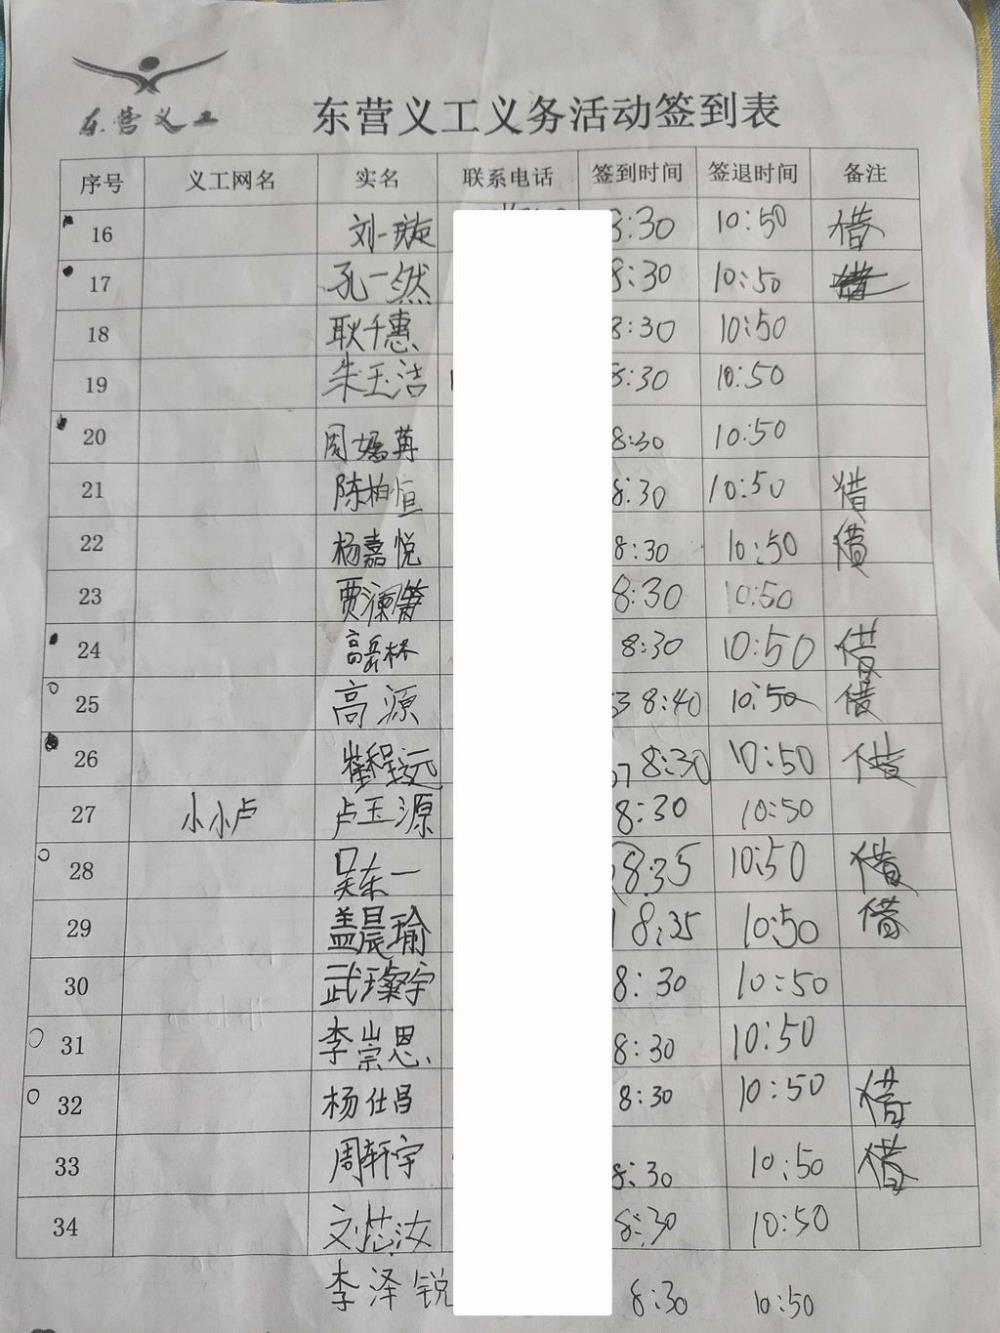 东营义工
东营义工义务活动签到表
序号 义工网名 实名 联系电话 签到时间 签退时间 备注
16 刘一璇 8:30 10:50 借
17 孔一然 8:30 10:50
18 耿千惠 8:30 10:50
19 朱玉洁 8:30 10:50
20 8:30 10:50
21 陈柏恒 8:30 10:50 借
22 杨嘉悦 8:30 10:50 借
23 8:30 10:50
24 高岳林 8:30 10:50 借
25 高源 8:40 10:50 借
26 崔程远 8:30 10:50 借
27 小小卢 卢玉源 8:30 10:50
28 吴东一 8:35 10:50 借
29 盖晨瑜 8:35 10:50 借
30 武璨宇 8:30 10:50
31 李崇恩 8:30 10:50
32 杨仕昌 8:30 10:50 借
33 周轩宇 8:30 10:50 借
34 刘芯汝 8:30 10:50
李泽锐 8:30 10:50